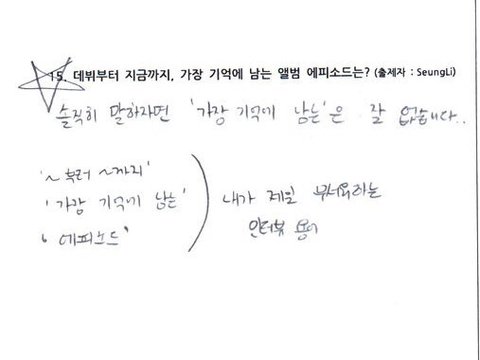 15. 데뷔부터 지금까지, 가장 기억에 남는 앨범 에피소드는? (출제자 : SeungLi)
솔직히 말하자면 '가장 기억에 남는'은 잘 없습니다..
'~부터 ~까지'
'가장 기억에 남는'
'에피소드'
내가 제일 무서워하는
인터뷰 용어